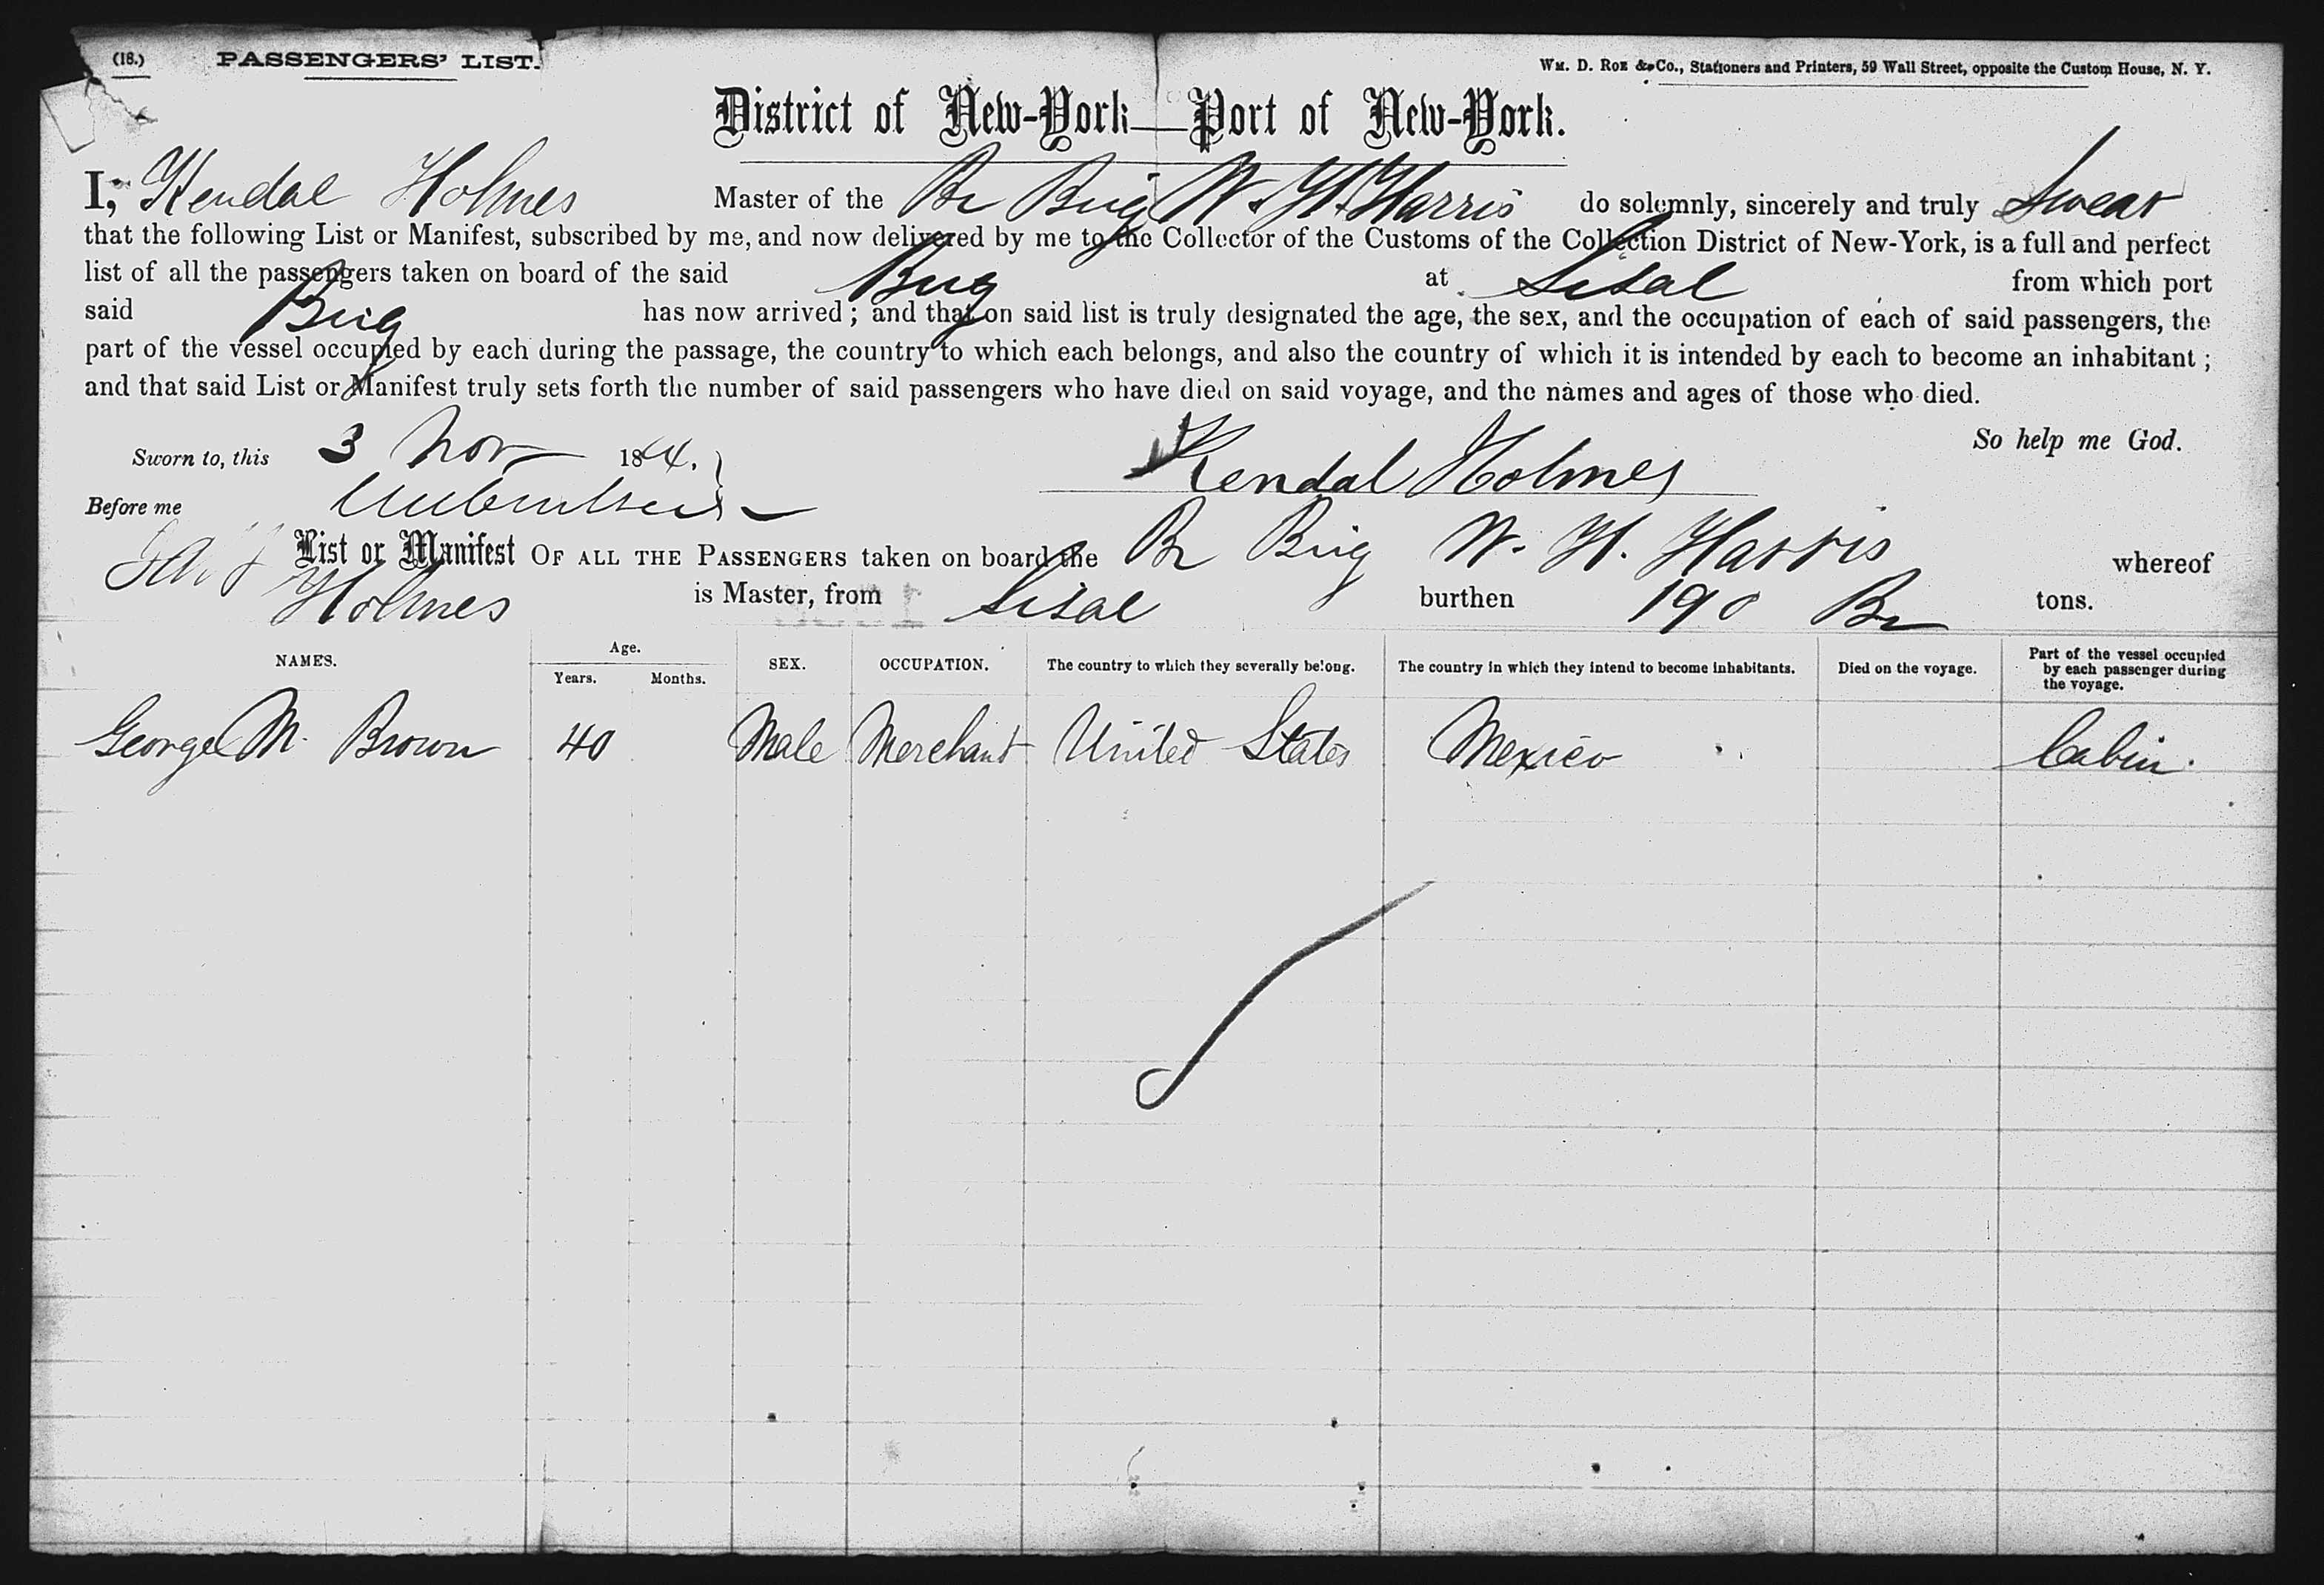 (18.) PASSENGERS' LIST. WM. D. ROE & Co., Stationers and Printers, 59 Wall Street, opposite the Custom House, N. Y.
District of New-York—Port of New-York.
I, Kendal Holmes Master of the Br Brig W. H. Harris do solemnly, sincerely and truly Swear
that the following List or Manifest, subscribed by me, and now delivered by me to the Collector of the Customs of the Collection District of New-York, is a full and perfect
list of all the passengers taken on board of the said Brig at Sisal from which port
said Brig has now arrived; and that on said list is truly designated the age, the sex, and the occupation of each of said passengers, the
part of the vessel occupied by each during the passage, the country to which each belongs, and also the country of which it is intended by each to become an inhabitant;
and that said List or Manifest truly sets forth the number of said passengers who have died on said voyage, and the names and ages of those who died.
So help me God.
Sworn to, this 3 Nov 1864.
Kendal Holmes
Before me
List or Manifest OF ALL THE PASSENGERS taken on board the Br Brig W. H. Harris whereof
Holmes is Master, from Sisal burthen 190 Br tons.
NAMES. Age. Years. Months. SEX. OCCUPATION. The country to which they severally belong. The country in which they intend to become inhabitants. Died on the voyage. Part of the vessel occupied by each passenger during the voyage.
George M. Brown 40 Male Merchant United States Mexico Cabin.